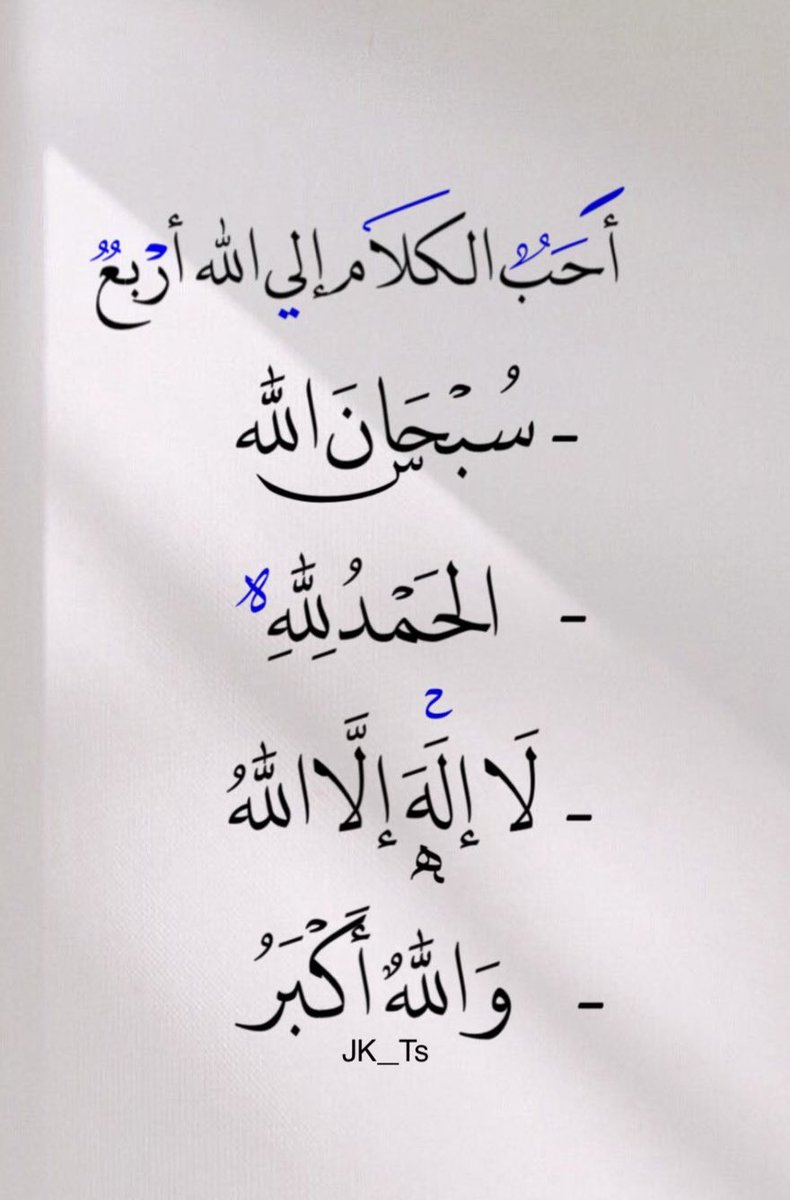 أَحَبُّ الكلَام إلي الله أرْبعٌ
- سُبْحَانَ الله
- الحَمْدُ لِلَّهِ
- لَا إلَهَ إلَّا اللَّهُ
- وَاللَّهُ أَكْبَرُ
JK_Ts